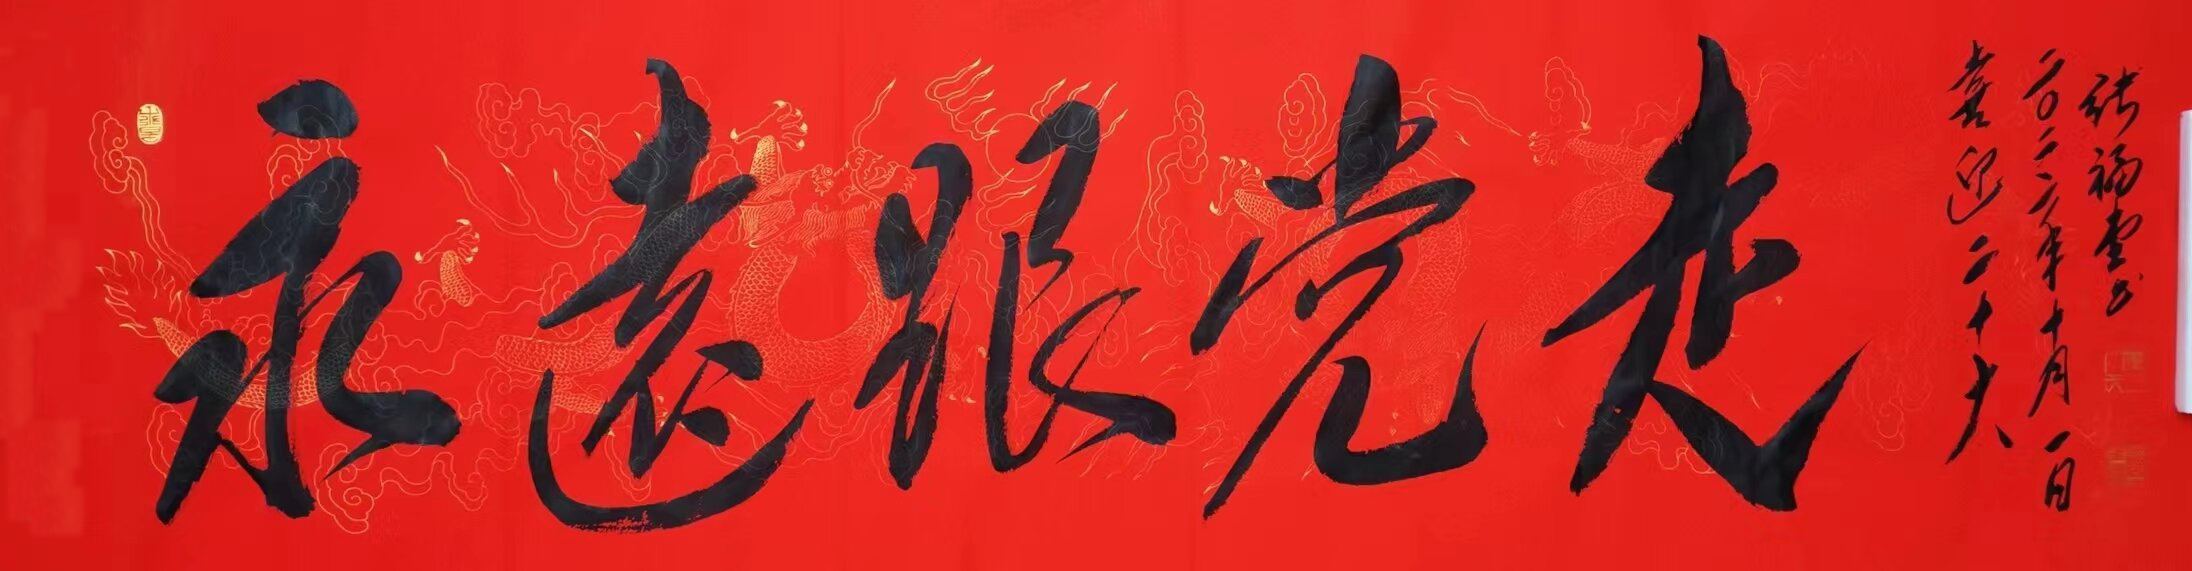 永远跟党走
喜迎二十大
二〇二二年十月一日
张福堂书